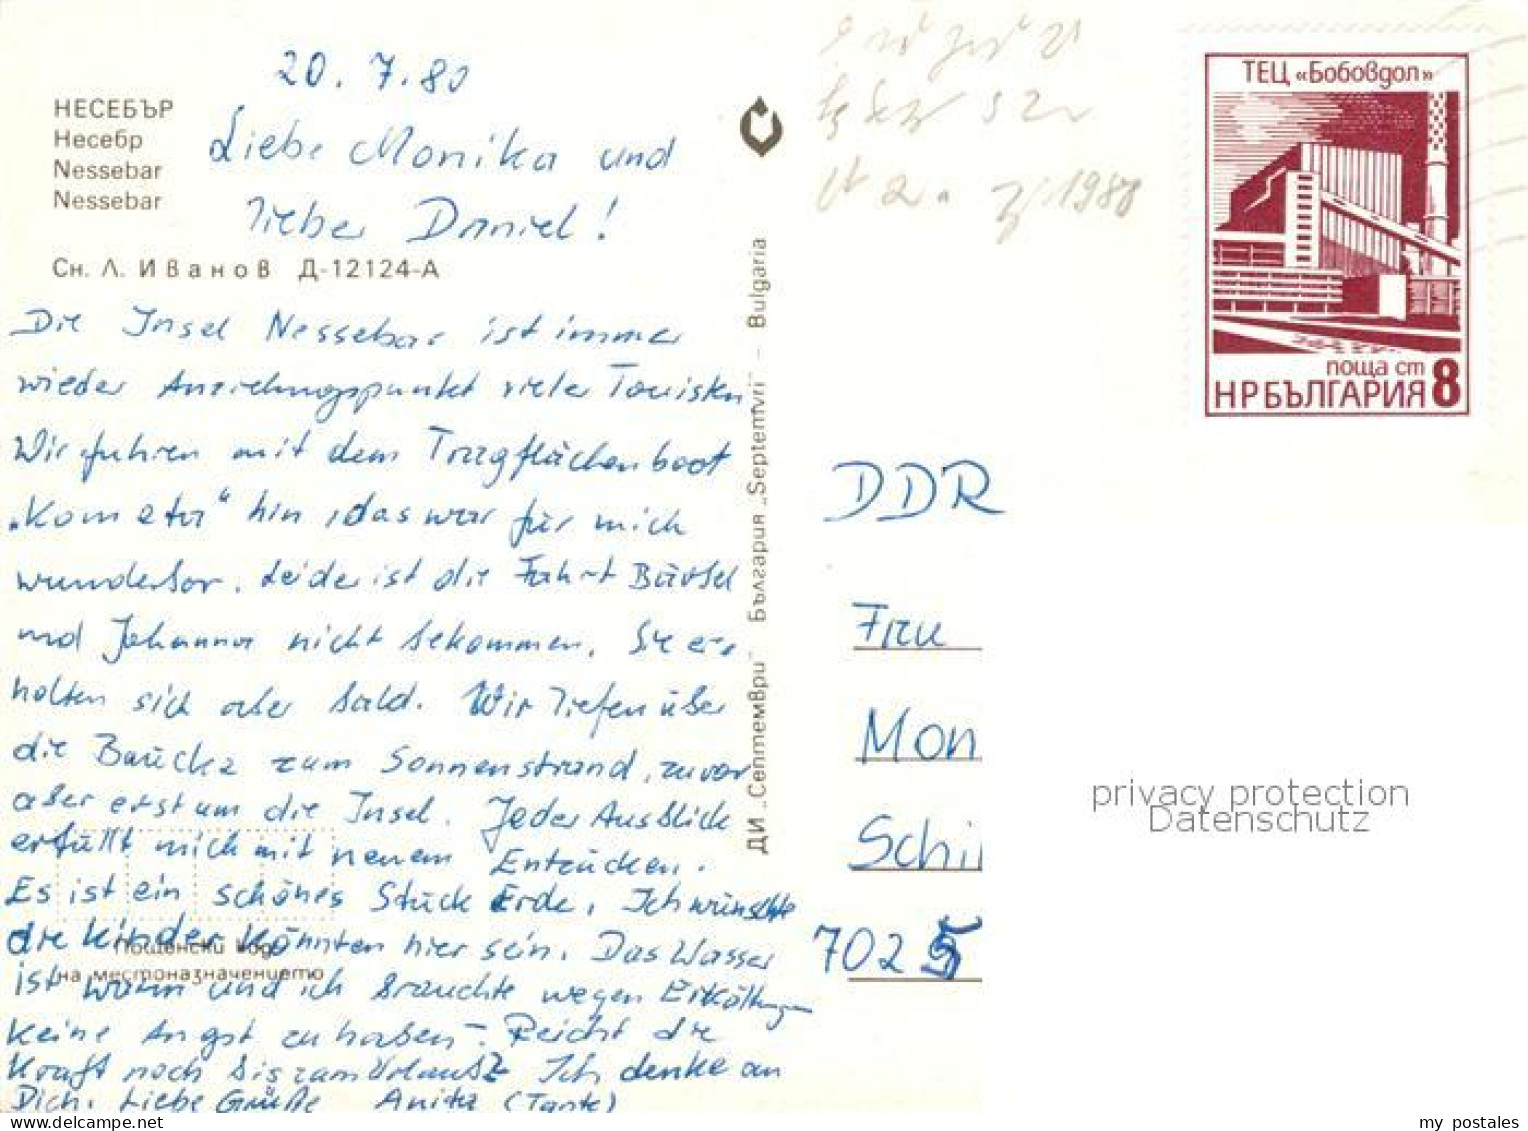 20.7.80
НЕСЕБЪР
Несебр
Nessebar
Nessebar
Liebe Monika und
lieber Daniel!
Сн. Л. Иванов Д-12124-А
Die Insel Nessebar ist immer
wieder Anziehungspunkt vieler Touristen
Wir fuhren mit dem Tragflächenboot
„Kometa“ hin, das war für mich
wunderbar. Leider ist die Fahrt Bärbel
und Johanna nicht bekommen. Sie er-
holten sich aber bald. Wir liefen über
die Brücke zum Sonnenstrand, zuvor
aber erst um die Insel. Jeder Ausblick
erfüllt mich mit neuem Entzücken.
Es ist ein schönes Stück Erde. Ich wünschte
die Kinder könnten hier sein. Das Wasser
ist warm und ich brauchte wegen Erkältungen
keine Angst zu haben – Reicht die
Kraft noch bis zum Urlaub? Ich denke an
Dich. Liebe Grüße Anita (Tante)
Пощенски код
на местоназначението
ДИ „Септември“ България „Septemvri“ – Bulgaria
1980
ТЕЦ «Бобовдол»
поща ст 8
НР БЪЛГАРИЯ
DDR
Frau
Mon
Schi
7025
privacy protection
Datenschutz
my postales